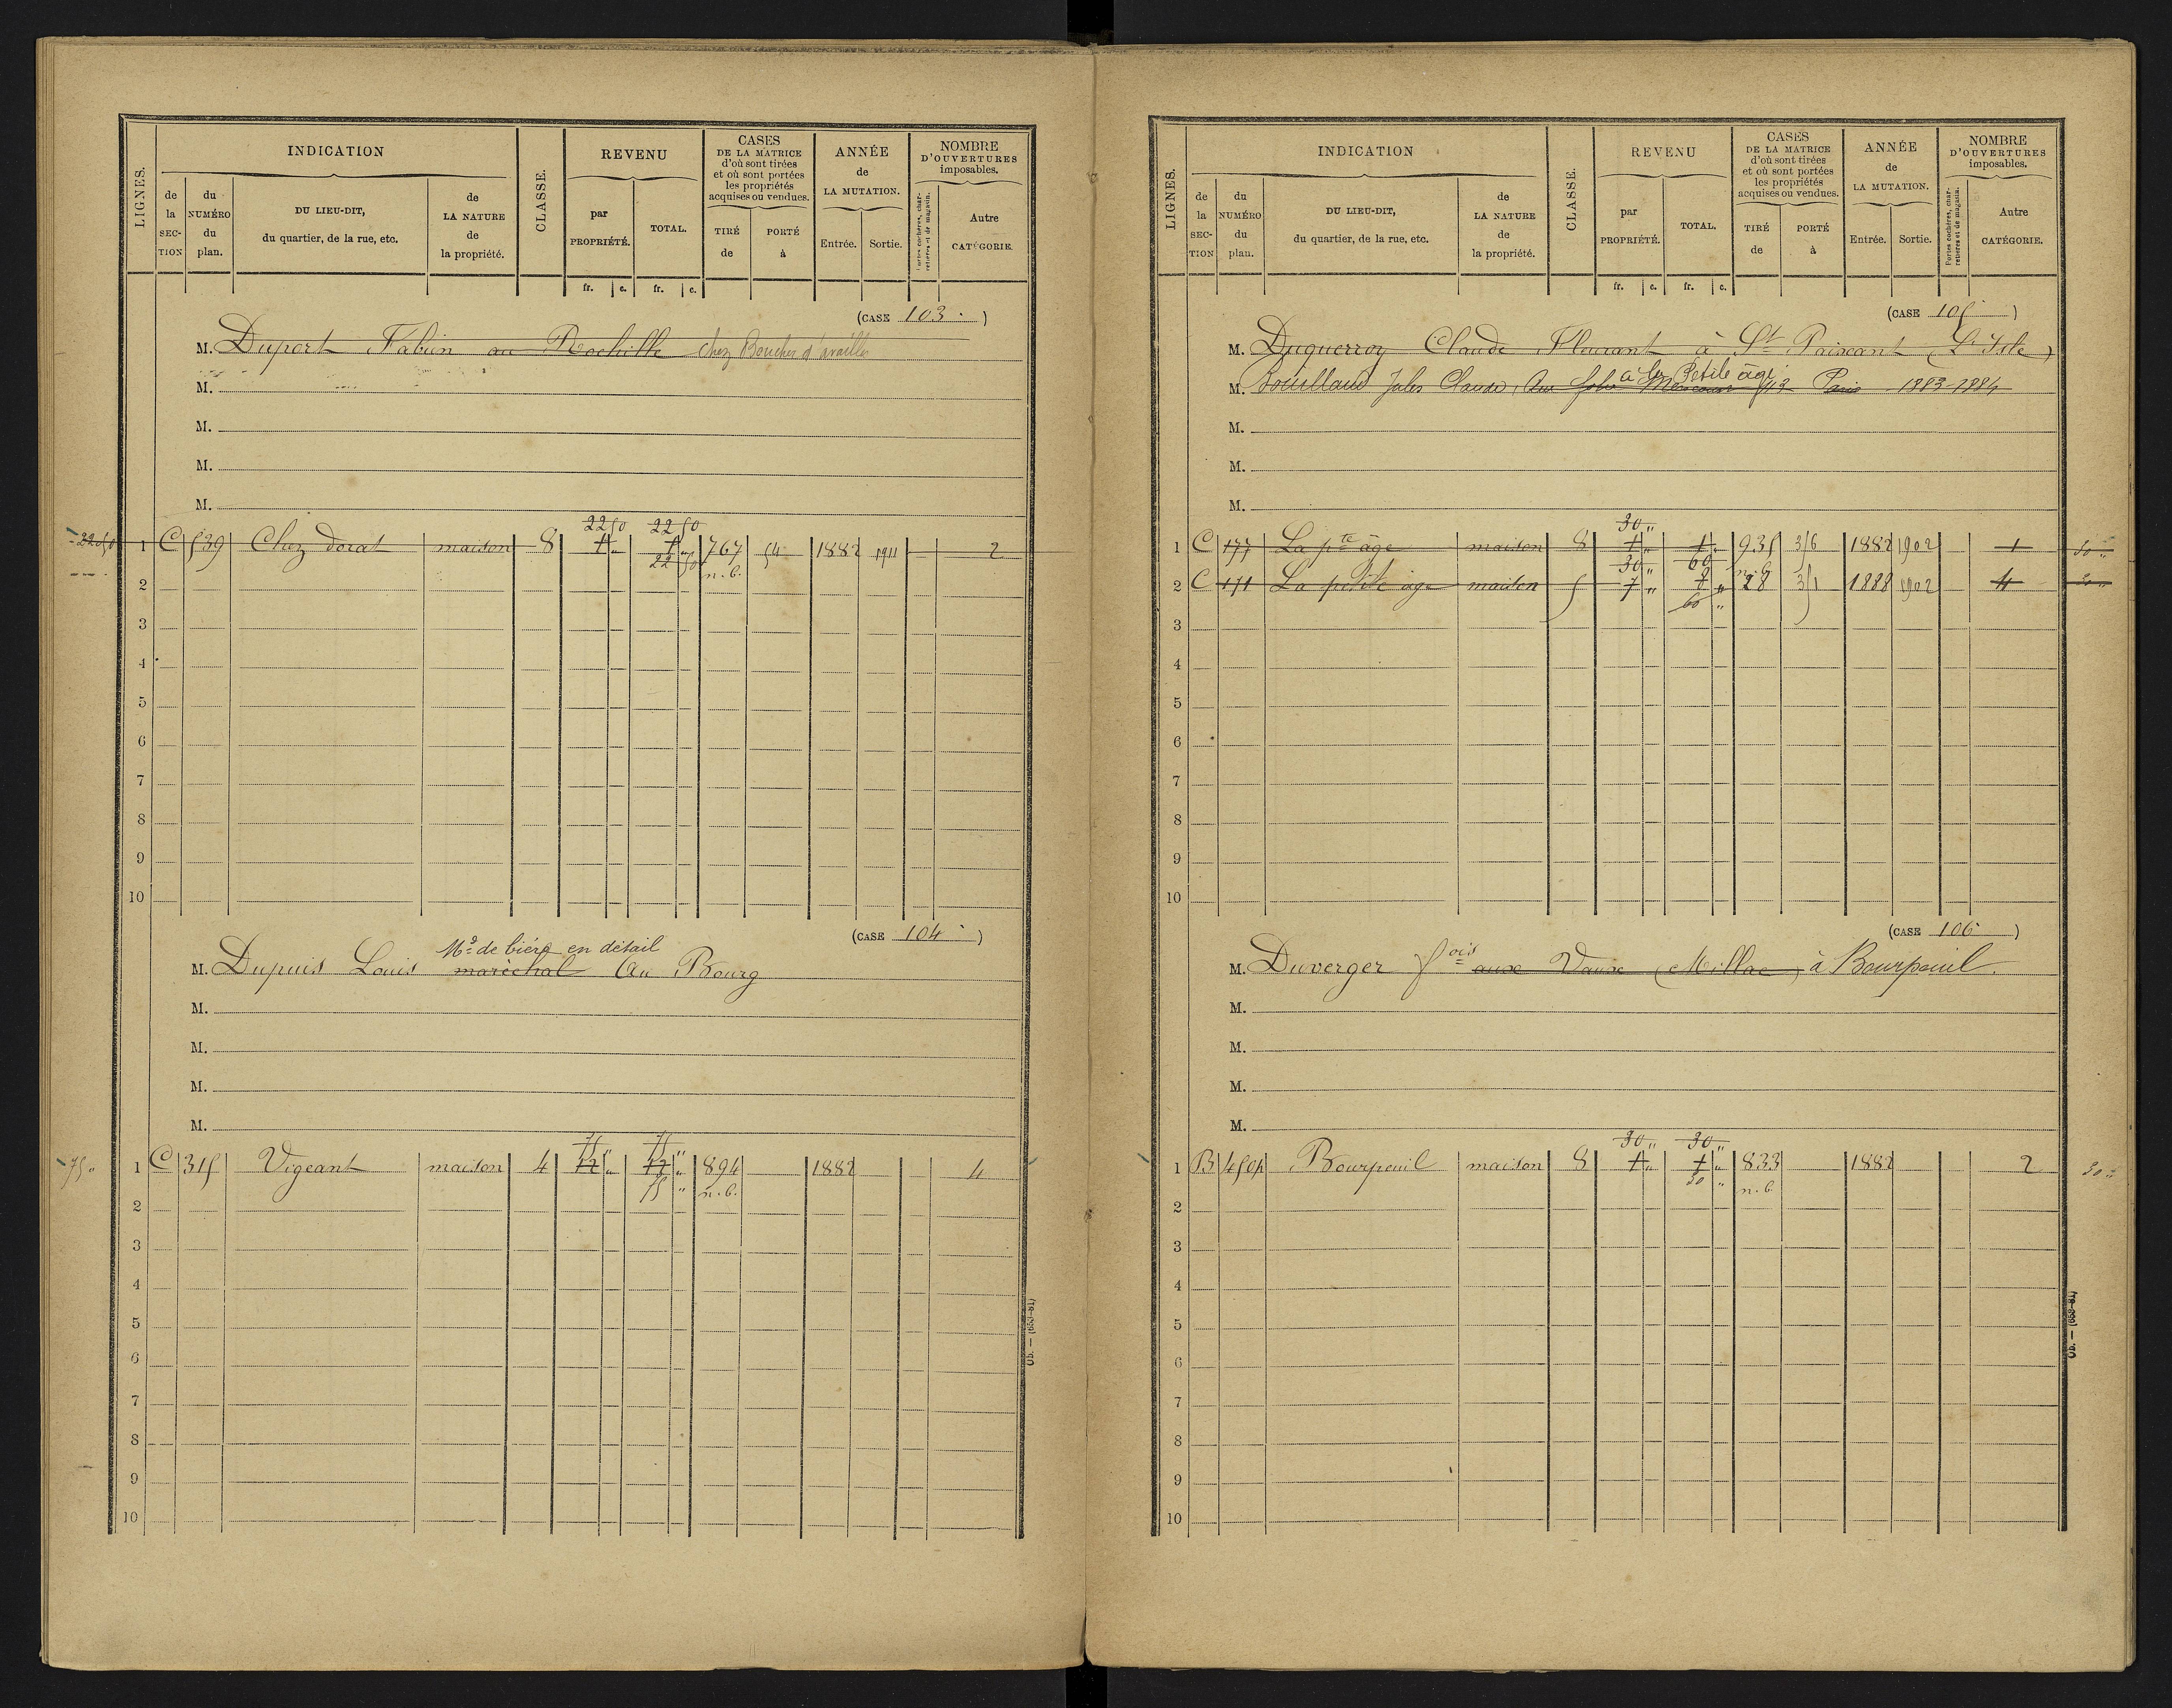 LIGNES.
INDICATION
de la SECTION
du NUMÉRO du plan.
DU LIEU-DIT, du quartier, de la rue, etc.
de LA NATURE de la propriété.
CLASSE.
REVENU
par PROPRIÉTÉ.
TOTAL.
CASES DE LA MATRICE d'où sont tirées et où sont portées les propriétés acquises ou vendues.
TIRÉ de
PORTÉ à
ANNÉE de LA MUTATION.
Entrée.
Sortie.
NOMBRE D'OUVERTURES imposables.
Portes cochères, charretières et de magasin.
Autre CATÉGORIE.
fr. c. fr. c.
(CASE 103.)
M. Duport Fabien au Rochille chez Boucher d'availles
M.
M.
M.
M.
22 50 22 50
22,50 1 C 539 Chez dorat maison 8 1 " 1 " 767 54 1882 1911 2
22 50 n.b.
2
3
4
5
6
7
8
9
10
(CASE 104)
Md de bière en détail
M. Dupuis Louis maréchal Au Bourg
M.
M.
M.
M.
75 " 75 "
75 " 1 C 315 Vigeant maison 4 12 " 12 " 894 1882 4
75 " n.b.
2
3
4
5
6
7
8
9
10
Ob. — (653-81)
LIGNES.
INDICATION
de la SECTION
du NUMÉRO du plan.
DU LIEU-DIT, du quartier, de la rue, etc.
de LA NATURE de la propriété.
CLASSE.
REVENU
par PROPRIÉTÉ.
TOTAL.
CASES DE LA MATRICE d'où sont tirées et où sont portées les propriétés acquises ou vendues.
TIRÉ de
PORTÉ à
ANNÉE de LA MUTATION.
Entrée.
Sortie.
NOMBRE D'OUVERTURES imposables.
Portes cochères, charretières et de magasin.
Autre CATÉGORIE.
fr. c. fr. c.
(CASE 105)
M. Duquerroy Claude Fleurant à St Paixcant (L'Isle)
à la Petite âge
M. Bouillaud Jules Claude, Rue 43 Paris 1883-1884
M.
M.
M.
30 "
1 C 177 La pte âge maison 8 1 " 1 " 935 316 1882 1902 1 30 "
30 " 60 n.b.
2 C 171 La petite âge maison 5 7 " 8 " 28 351 1888 1902 4 30 "
60 "
3
4
5
6
7
8
9
10
(CASE 106)
M. Duverger fois aux Vaux (Millac) à Bourpeuil.
M.
M.
M.
M.
30 " 30 "
1 B 4504 Bourpeuil maison 8 1 " 1 " 833 1882 2 30 "
30 " n.b.
2
3
4
5
6
7
8
9
10
Ob. — (653-81)